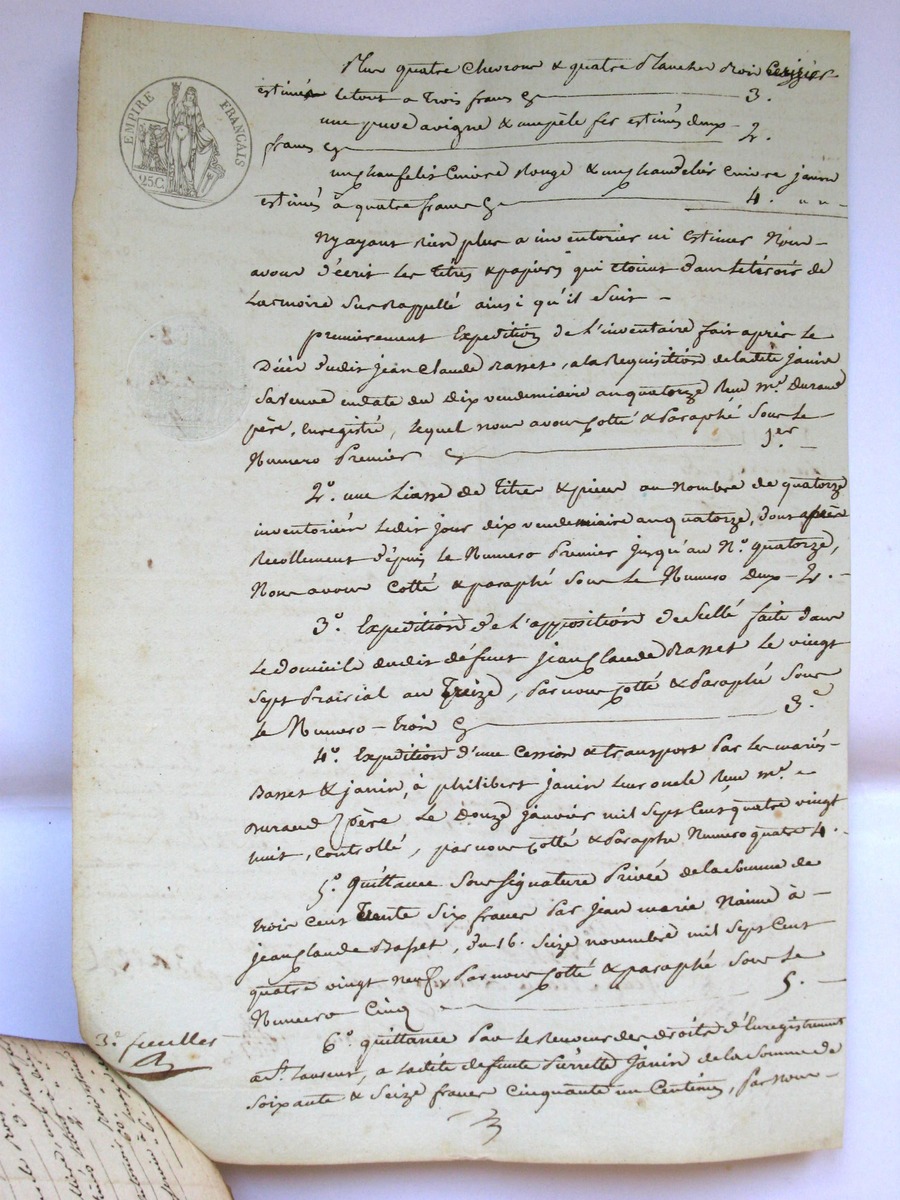 EMPIRE FRANÇAIS
25C.
Plus quatre Chevrons & quatre Planches Bois Cerizier
estimés le tout a trois francs 3.
une puve a vigne & une pele fer estimés deux
francs 2.
un chaufelit Cuivre Rouge & un chandelier Cuivre jaune
estimés à quatre francs 4. " "
N'y ayant rien plus a inventorier ni estimer Nous
avons d'ecrit les titres & papiers qui etoient dans le tiroir de
L'armoire sus Rappellé ainsi qu'il suit
premierement Expedition de L'inventaire fait après le
Décès dudit jean Claude Basset, a la Requisition de ladite janin
sa veuve en date du dix vendemiaire an quatorze Reçu me. Durand
père, Enregistré, lequel nous avons Cotté & Paraphé Sous le
Numero Premier 1er.
2o. une Liasse de titres & pieces au Nombre de quatorze
inventoriés ledit jour dix vendemiaire an quatorze, dont après
Recollement d'epuis le Numero Premier jusqu'au No. quatorze,
Nous avons Cotté & paraphé sous le Numero Deux 2.
3o. Expedition de L'apposition de scellé faite dans
Le domicile dudit défunt jean Claude Basset le vingt
Sept Prairial an Treize, Par nous Cotté & Paraphé Sous
le Numero trois 3.
4o. Expedition d'une Cession & transport Par les mariés
Basset & janin, à philibert janin leur oncle Reçu me.
Durand père Le Douze janvier mil Sept Cent quatre vingt
huit, Controllé, par nous Cotté & Paraphé Numero quatre 4.
5o. Quittance Sous signature Privée de la Somme de
trois Cent Trente Six francs Par jean marie Naime à
jean Claude Basset, du 16. Seize novembre mil Sept Cent
quatre vingt neuf, Par nous Cotté & paraphé Sous le
Numero Cinq 5.
3e. feuillet
6o. quittance Par le Receveur des droits d'Enregistrement
a St. Laurent, a ladite defunte Pierrette Janin de la Somme de
Soixante & Seize francs Cinquante un Centimes, Par nous